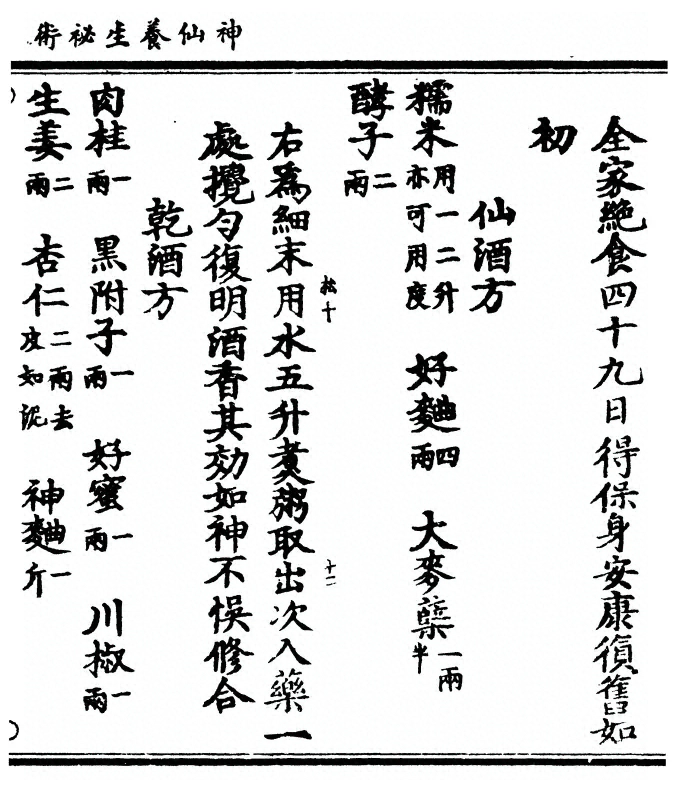 神仙養生祕術
全家絶食四十九日得保身安康復舊如
初
仙酒方
糯米用一二升亦可用度 好麯四兩 大麥糵一兩半
酵子二兩
松十
十二
右爲細末用水五升煑粥取出次入藥一
處攪勻復明酒香其効如神不悞修合
乾酒方
肉桂一兩 黑附子一兩 好蜜一兩 川椒一兩
生姜二兩 杏仁二兩去皮如泥 神麯一斤